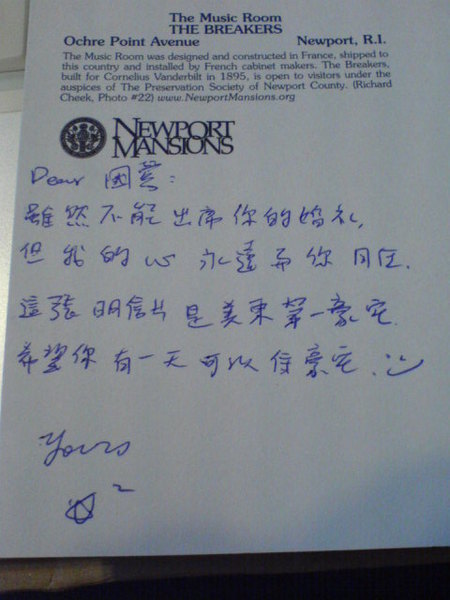 The Music Room
THE BREAKERS
Ochre Point Avenue Newport, R.I.
The Music Room was designed and constructed in France, shipped to
this country and installed by French cabinet makers. The Breakers,
built for Cornelius Vanderbilt in 1895, is open to visitors under the
auspices of The Preservation Society of Newport County. (Richard
Cheek, Photo #22) www.NewportMansions.org
NEWPORT
MANSIONS
Dear 國
雖然不能出席你的婚礼,
但我的心永遠與你同在.
這張明信片是美東第一豪宅.
希望你有一天可以住豪宅
Yours